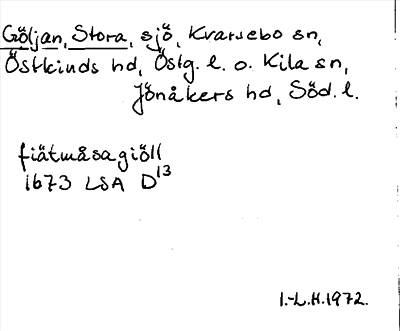 Göljan, Stora, sjö, Kvarsebo sn,
Östkinds hd, Östg. l. o. Kila sn,
Jönåkers hd, Söd. l.
fiätmåsagiöll
1673 LSA D13
I.-L.H.1972.